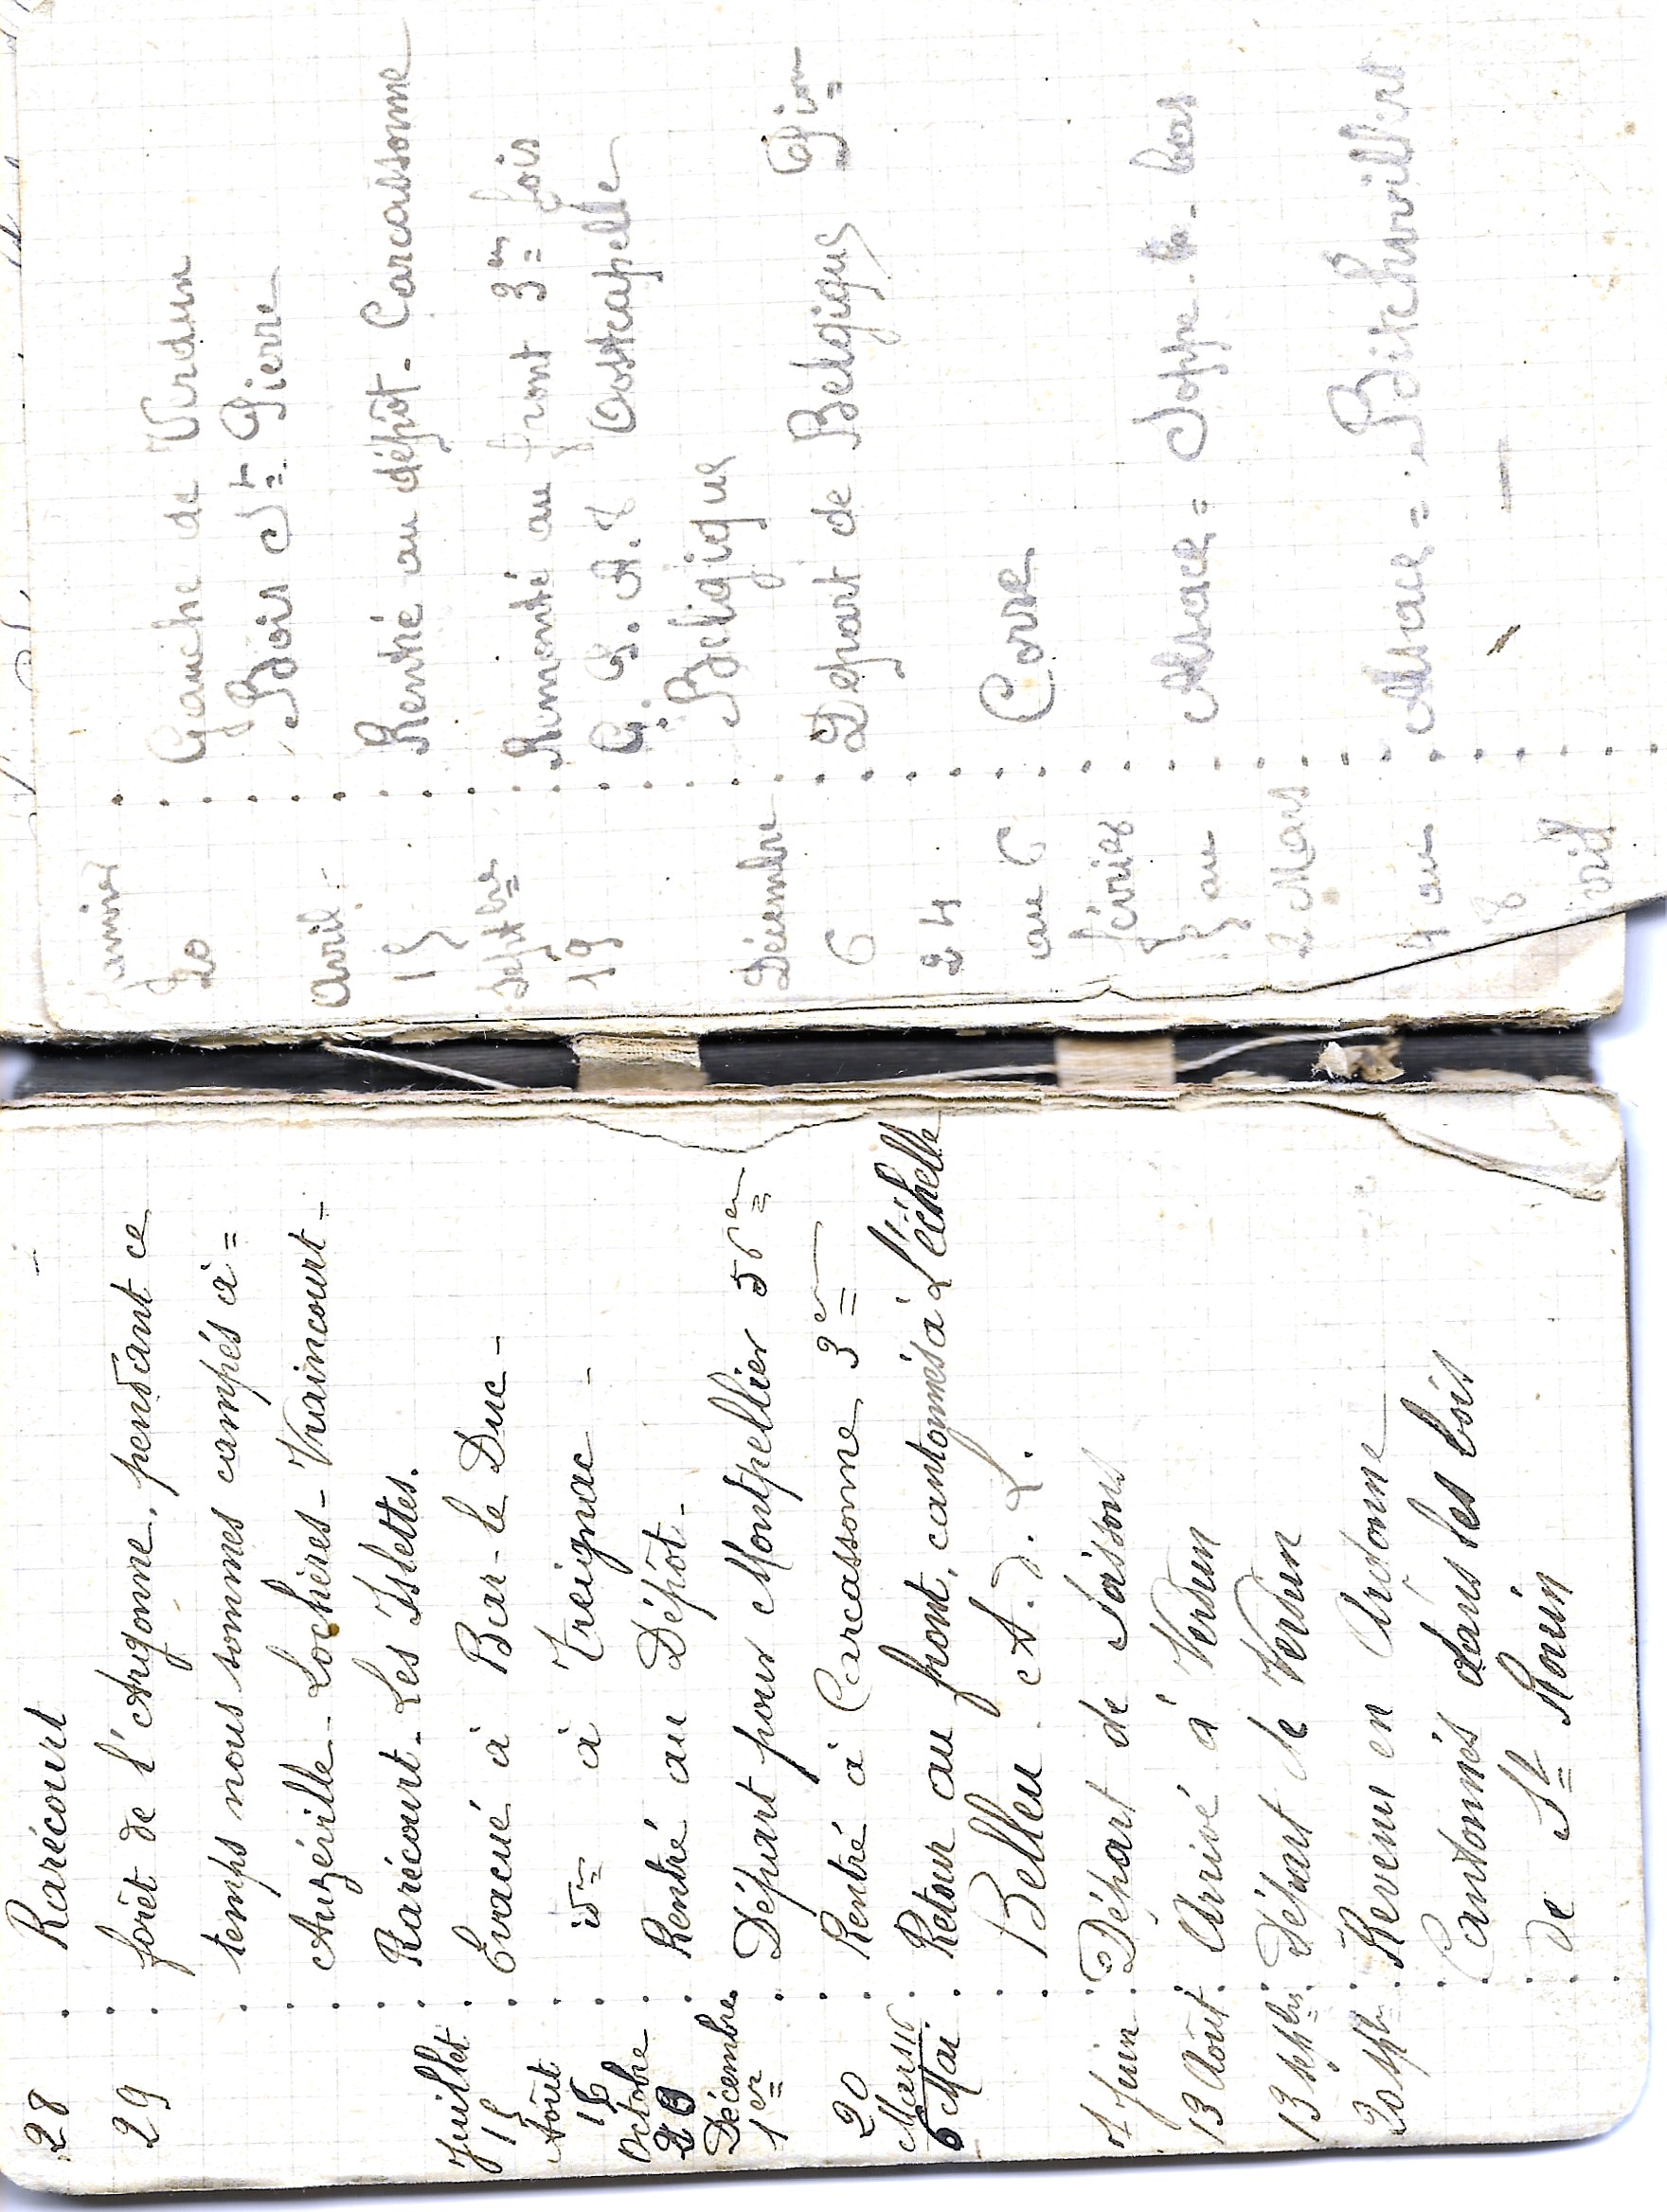 28 Rarécourt
29 forêt de l'Argonne, pendant ce
temps nous sommes campés à =
Auzéville - Lochères - Vraincourt -
Rarécourt - Les Islettes.
Juillet
15 Evacué à Bar-le Duc -
Août
16 idm à Treignac -
Octobre
20 Rentré au Dépôt -
Décembre
1er Départ pour Montpellier 56em
20 Rentré à Carcassonne 3e
Mars 16
6 Mai Retour au front, cantonnés à L'échelle
Belleu. A. D. L.
1 Juin Départ de Soissons
13 Août Arrivé à Verdun
13 7bre Départ de Verdun
20 7bre Revenu en Argonne
Cantonnés dans les bois
de St Rouin
Janvier
20 Gauche de Verdun
Bois St Pierre
Avril
15 Rentré au dépôt - Carcassonne
Septbre
19 Remonté au front 3em fois
G. B. A. 8 Oostcapelle
Belgique
Décembre
6 Départ de Belgique
24
au 6 Corre
février
3 au Alsace = Soppe-le-bas
2 Mars
4 au Alsace = Bitchwillers
8
avril